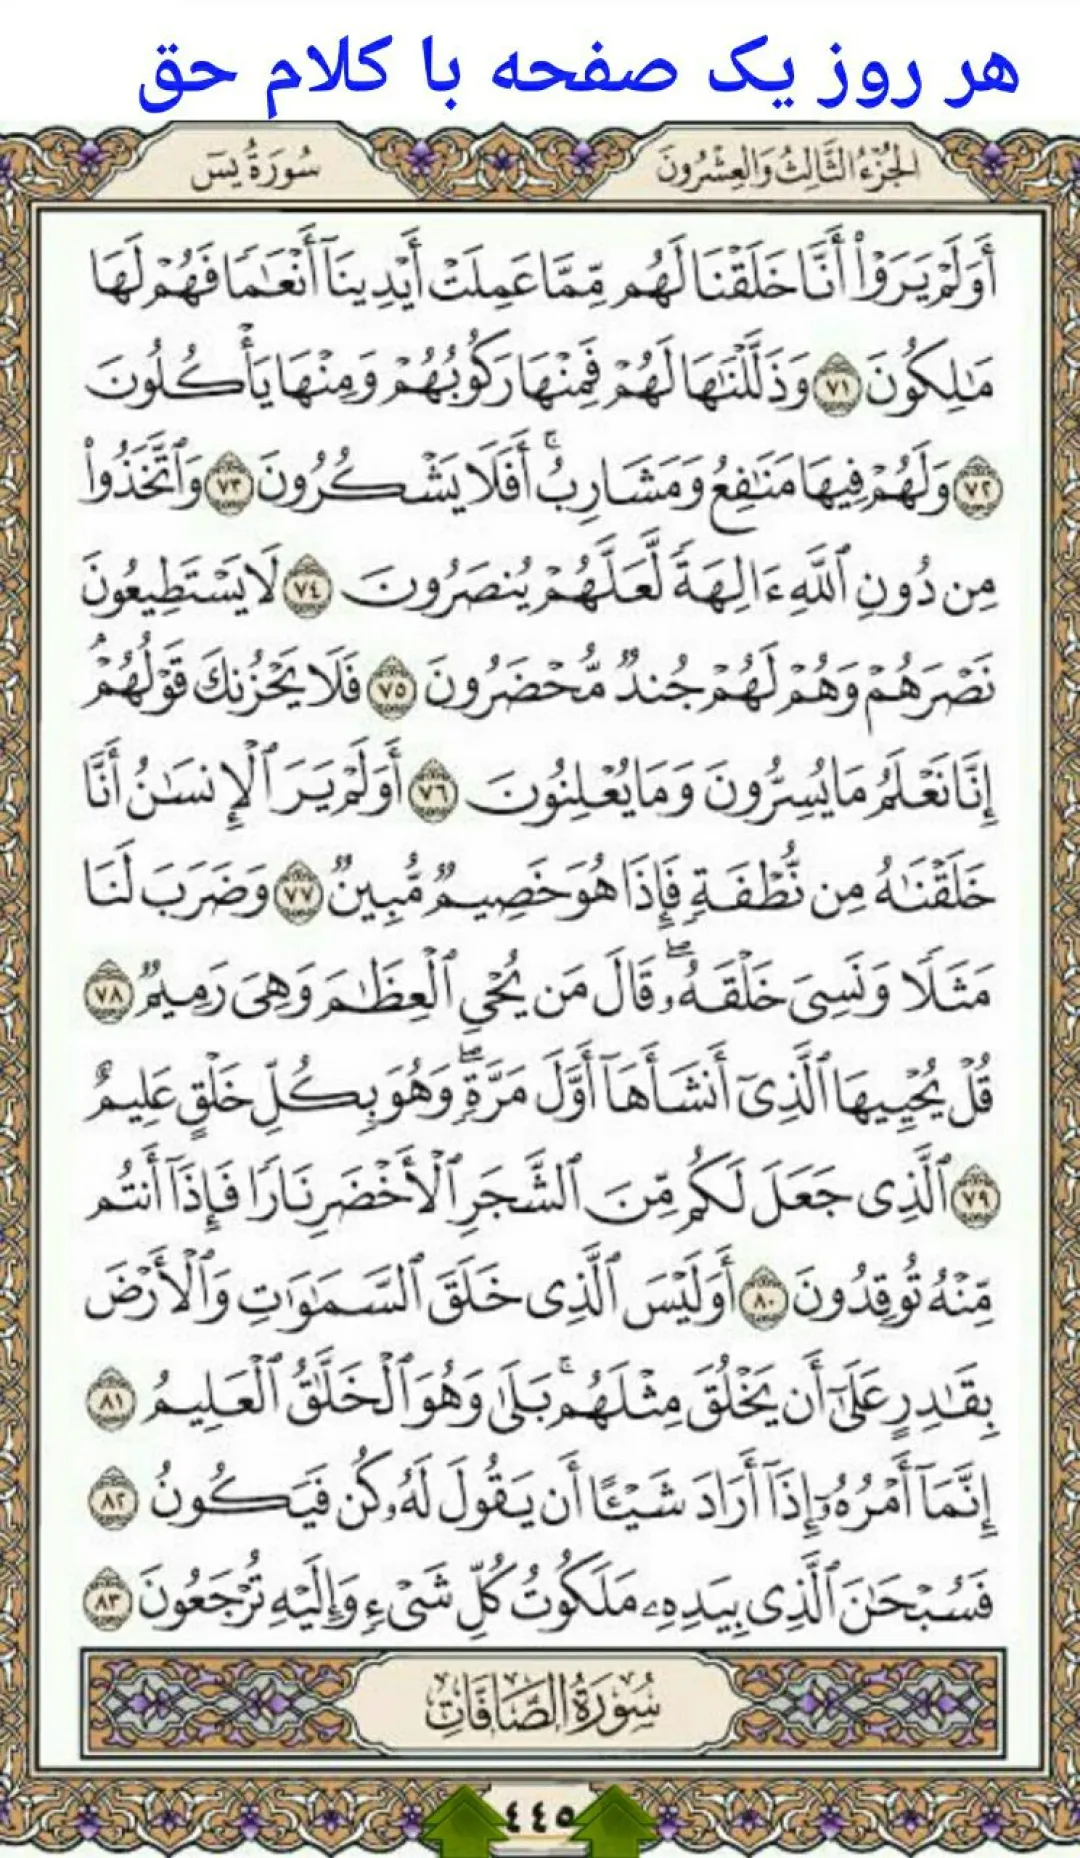 هر روز یک صفحه با کلام حق
الجُزْءُ الثَّالِثُ وَالعِشْرُونَ
سُورَةُ يسٓ
أَوَلَمْ يَرَوْا۟ أَنَّا خَلَقْنَا لَهُم مِّمَّا عَمِلَتْ أَيْدِينَآ أَنْعَٰمًا فَهُمْ لَهَا
مَٰلِكُونَ ٧١ وَذَلَّلْنَٰهَا لَهُمْ فَمِنْهَا رَكُوبُهُمْ وَمِنْهَا يَأْكُلُونَ
٧٢ وَلَهُمْ فِيهَا مَنَٰفِعُ وَمَشَارِبُ ۚ أَفَلَا يَشْكُرُونَ ٧٣ وَٱتَّخَذُوا۟
مِن دُونِ ٱللَّهِ ءَالِهَةً لَّعَلَّهُمْ يُنصَرُونَ ٧٤ لَا يَسْتَطِيعُونَ
نَصْرَهُمْ وَهُمْ لَهُمْ جُندٌ مُّحْضَرُونَ ٧٥ فَلَا يَحْزُنكَ قَوْلُهُمْ ۘ
إِنَّا نَعْلَمُ مَا يُسِرُّونَ وَمَا يُعْلِنُونَ ٧٦ أَوَلَمْ يَرَ ٱلْإِنسَٰنُ أَنَّا
خَلَقْنَٰهُ مِن نُّطْفَةٍ فَإِذَا هُوَ خَصِيمٌ مُّبِينٌ ٧٧ وَضَرَبَ لَنَا
مَثَلًا وَنَسِىَ خَلْقَهُۥ ۖ قَالَ مَن يُحْىِ ٱلْعِظَٰمَ وَهِىَ رَمِيمٌ ٧٨
قُلْ يُحْيِيهَا ٱلَّذِىٓ أَنشَأَهَآ أَوَّلَ مَرَّةٍ ۖ وَهُوَ بِكُلِّ خَلْقٍ عَلِيمٌ
٧٩ ٱلَّذِى جَعَلَ لَكُم مِّنَ ٱلشَّجَرِ ٱلْأَخْضَرِ نَارًا فَإِذَآ أَنتُم
مِّنْهُ تُوقِدُونَ ٨٠ أَوَلَيْسَ ٱلَّذِى خَلَقَ ٱلسَّمَٰوَٰتِ وَٱلْأَرْضَ
بِقَٰدِرٍ عَلَىٰٓ أَن يَخْلُقَ مِثْلَهُم ۚ بَلَىٰ وَهُوَ ٱلْخَلَّٰقُ ٱلْعَلِيمُ ٨١
إِنَّمَآ أَمْرُهُۥٓ إِذَآ أَرَادَ شَيْـًٔا أَن يَقُولَ لَهُۥ كُن فَيَكُونُ ٨٢
فَسُبْحَٰنَ ٱلَّذِى بِيَدِهِۦ مَلَكُوتُ كُلِّ شَىْءٍ وَإِلَيْهِ تُرْجَعُونَ ٨٣
سُورَةُ الصَّافَّاتِ
٤٤٥